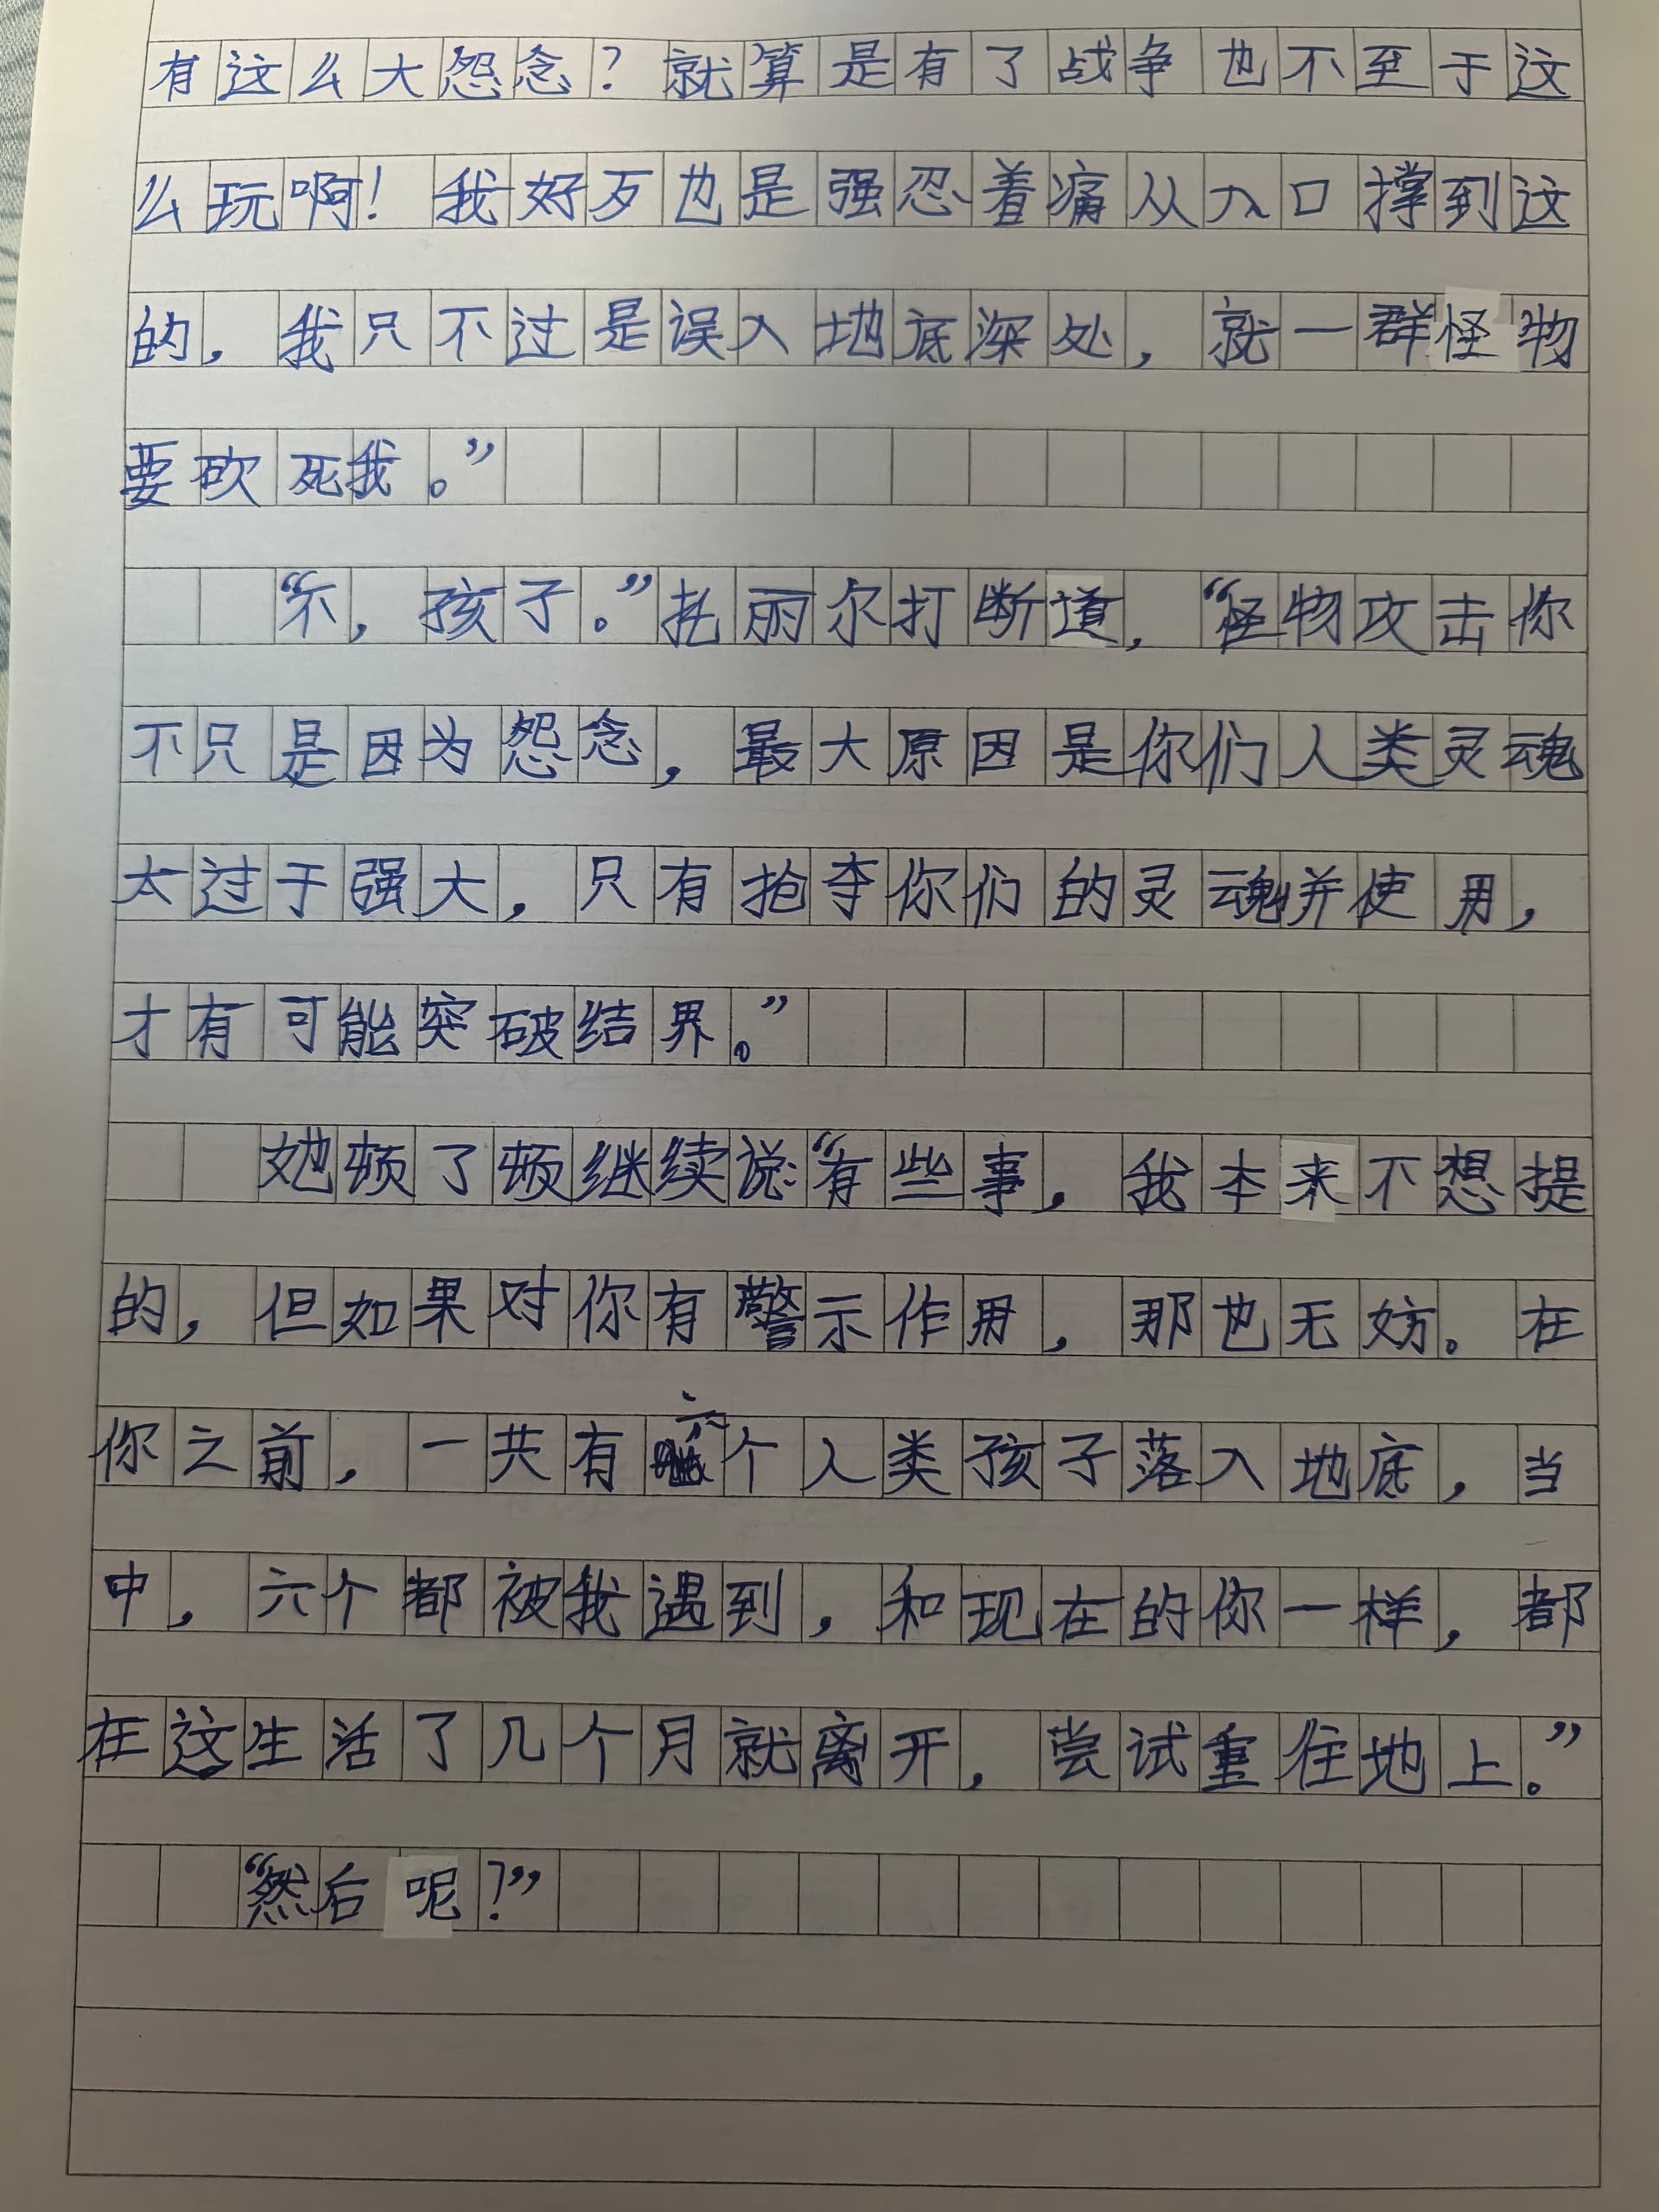 有这么大怨念？就算是有了战争也不至于这
么玩啊！我好歹也是强忍着痛从入口撑到这
的，我只不过是误入地底深处，就一群怪物
要砍死我。”
“不，孩子。”托丽尔打断道，“怪物攻击你
不只是因为怨念，最大原因是你们人类灵魂
太过于强大，只有抢夺你们的灵魂并使用，
才有可能突破结界。”
她顿了顿继续说：“有些事，我本来不想提
的，但如果对你有警示作用，那也无妨。在
你之前，一共有六个人类孩子落入地底，当
中，六个都被我遇到，和现在的你一样，都
在这生活了几个月就离开，尝试重往地上。”
“然后呢？”